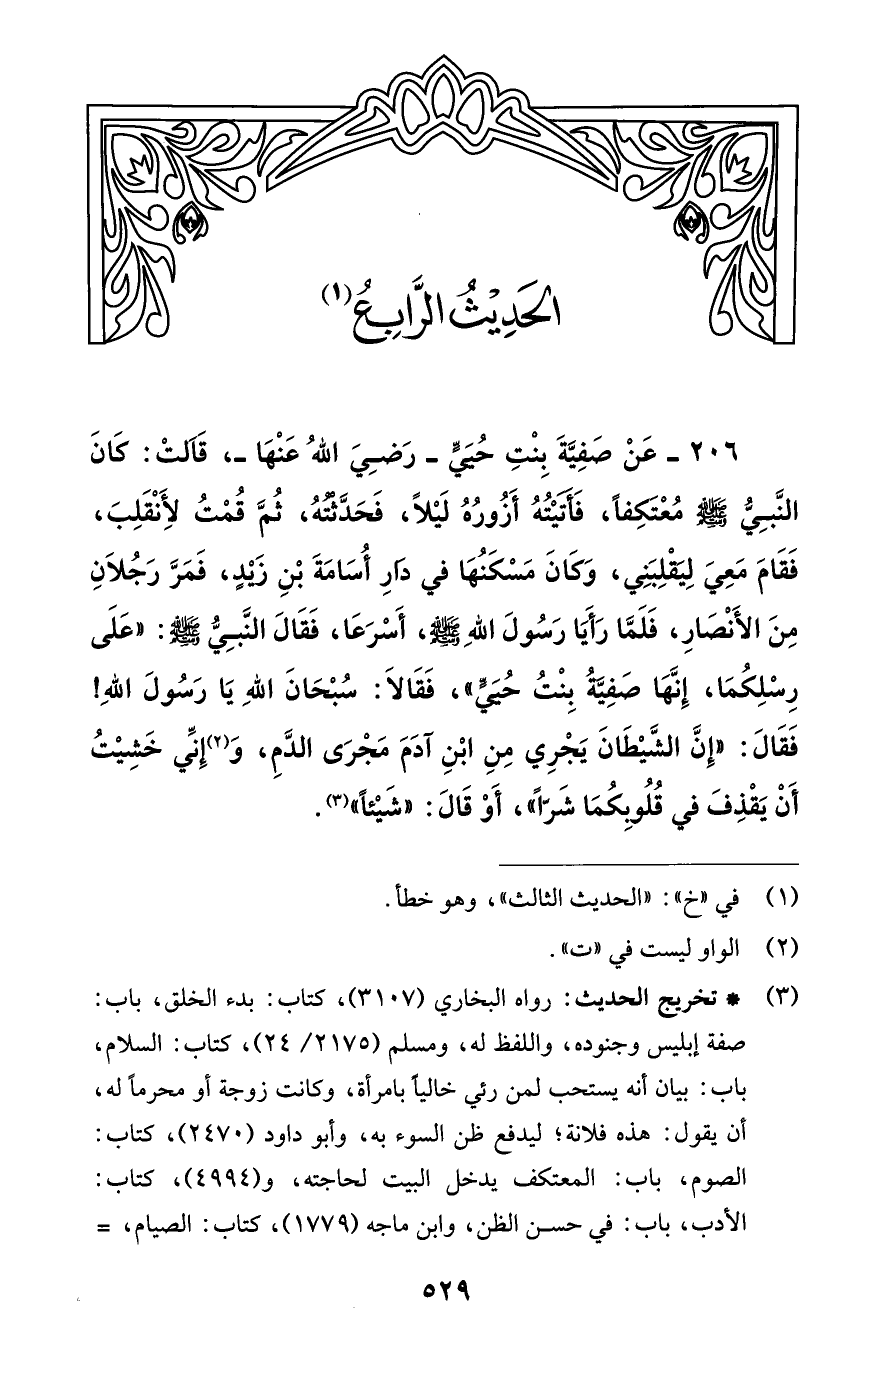 الحَدِيْثُ الرَّابِعُ(١)
٢٠٦ ـ عَنْ صَفِيَّةَ بِنْتِ حُيَيٍّ ـ رَضِيَ اللهُ عَنْهَا ـ، قَالَتْ: كَانَ
النَّبِيُّ ﷺ مُعْتَكِفاً، فَأَتَيْتُهُ أَزُورُهُ لَيْلاً، فَحَدَّثْتُهُ، ثُمَّ قُمْتُ لِأَنْقَلِبَ،
فَقَامَ مَعِيَ لِيَقْلِبَنِي، وَكَانَ مَسْكَنُهَا في دَارِ أُسَامَةَ بْنِ زَيْدٍ، فَمَرَّ رَجُلاَنِ
مِنَ الأَنْصَارِ، فَلَمَّا رَأَيَا رَسُولَ اللهِ ﷺ، أَسْرَعَا، فَقَالَ النَّبِيُّ ﷺ: «عَلَى
رِسْلِكُمَا، إِنَّهَا صَفِيَّةُ بِنْتُ حُيَيٍّ»، فَقَالاَ: سُبْحَانَ اللهِ يَا رَسُولَ اللهِ!
فَقَالَ: «إِنَّ الشَّيْطَانَ يَجْرِي مِنِ ابْنِ آدَمَ مَجْرَى الدَّمِ، وَ(٢)إِنِّي خَشِيْتُ
أَنْ يَقْذِفَ في قُلُوبِكُمَا شَرّاً»، أَوْ قَالَ: «شَيْئاً»(٣).
(١) في «خ»: «الحديث الثالث»، وهو خطأ.
(٢) الواو ليست في «ت».
(٣) * تخريج الحديث: رواه البخاري (٣١٠٧)، كتاب: بدء الخلق، باب:
صفة إبليس وجنوده، واللفظ له، ومسلم (٢١٧٥/ ٢٤)، كتاب: السلام،
باب: بيان أنه يستحب لمن رئي خالياً بامرأة، وكانت زوجة أو محرماً له،
أن يقول: هذه فلانة؛ ليدفع ظن السوء به، وأبو داود (٢٤٧٠)، كتاب:
الصوم، باب: المعتكف يدخل البيت لحاجته، و(٤٩٩٤)، كتاب:
الأدب، باب: في حسن الظن، وابن ماجه (١٧٧٩)، كتاب: الصيام، =
٥٢٩